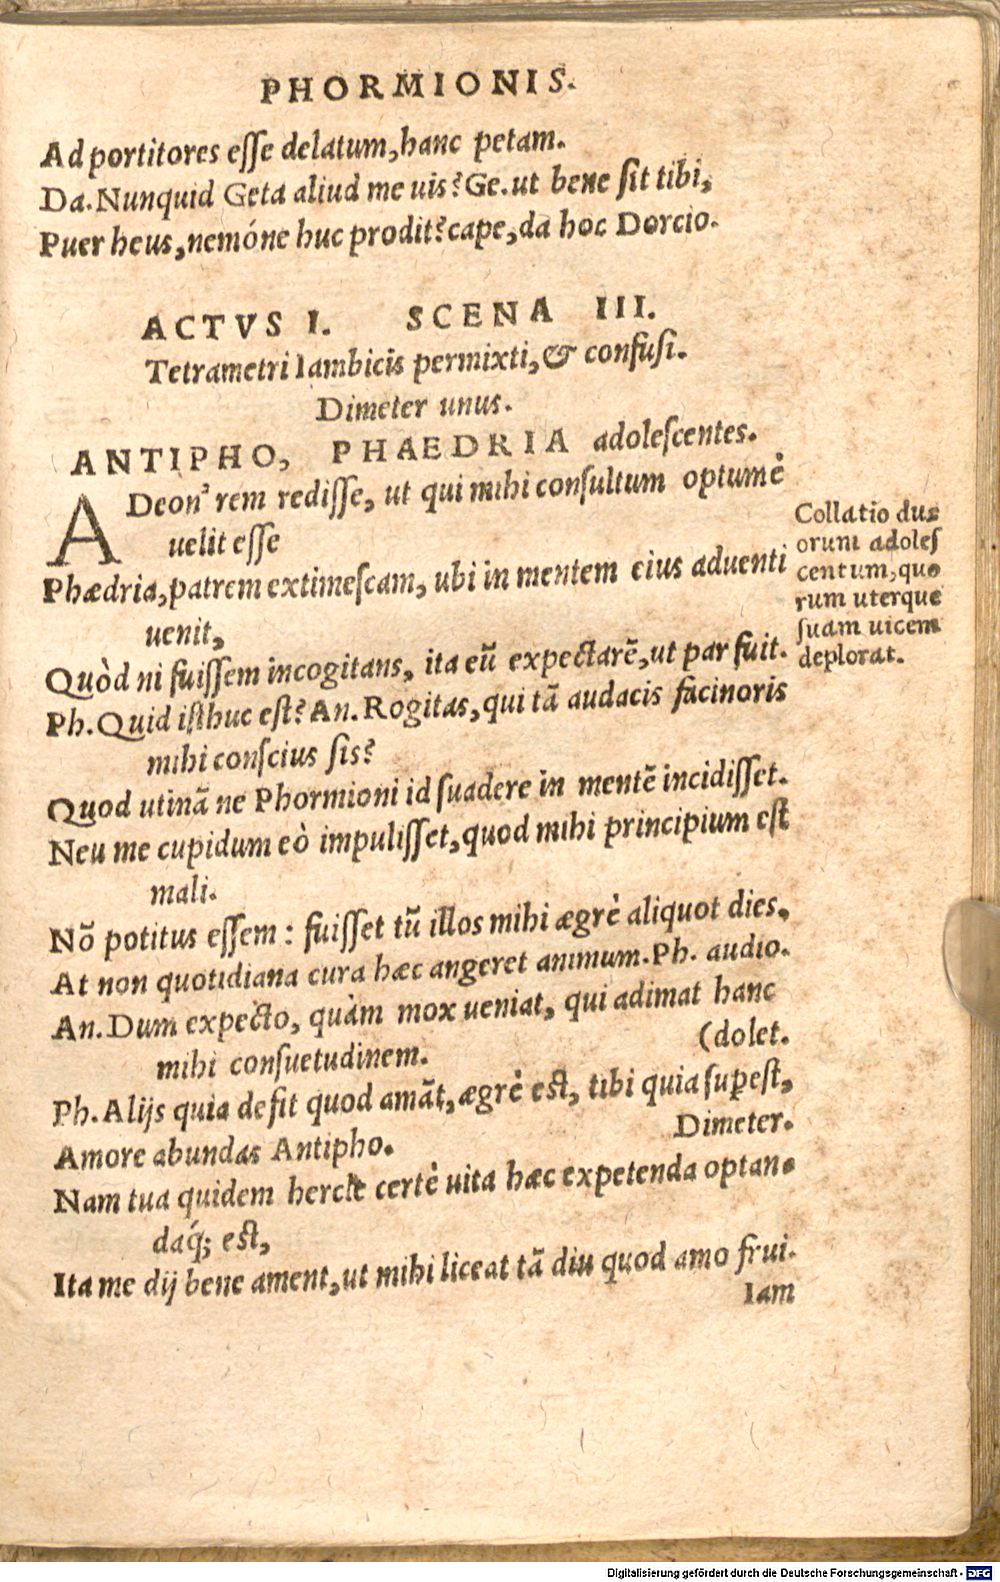 PHORMIONIS.
Ad portitores esse delatum, hanc petam.
Da. Nunquid Geta aliud me uis? Ge. ut bene sit tibi,
Puer heus, nemóne huc prodit? cape, da hoc Dorcio.
ACTVS I. SCENA III.
Tetrametri Iambicis permixti, & confusi.
Dimeter unus.
ANTIPHO, PHAEDRIA adolescentes.
ADeon' rem redisse, ut qui mihi consultum optumè
uelit esse
Phædria, patrem extimescam, ubi in mentem eius aduenti
uenit,
Quòd ni fuissem incogitans, ita eū expectarē, ut par fuit.
Ph. Quid isthuc est? An. Rogitas, qui tā audacis facinoris
mihi conscius sis?
Quod utinā ne Phormioni id suadere in mentē incidisset.
Neu me cupidum eò impulisset, quod mihi principium est
mali.
Nō potitus essem: fuisset tū illos mihi ægrè aliquot dies,
At non quotidiana cura hæc angeret animum. Ph. audio.
An. Dum expecto, quàm mox ueniat, qui adimat hanc
mihi consuetudinem. (dolet.
Ph. Alijs quia defit quod amāt, ægrè est, tibi quia suꝑest,
Amore abundas Antipho. Dimeter.
Nam tua quidem hercle certè uita hæc expetenda optan-
daq́; est,
Ita me dij bene ament, ut mihi liceat tā diu quod amo frui.
Iam
Collatio du-
orum adoles
centum, quo
rum uterque
suam uicem
deplorat.
Digitalisierung gefördert durch die Deutsche Forschungsgemeinschaft - DFG